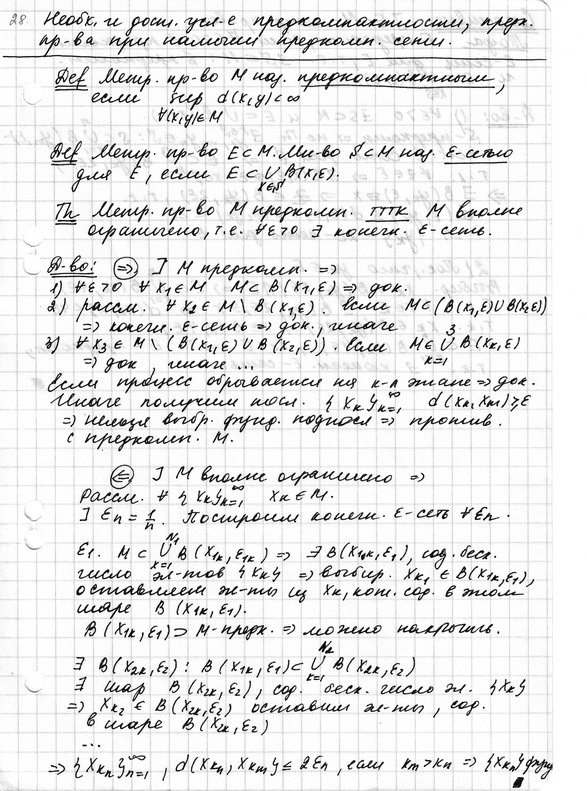 28. Необх. и дост. усл-е предкомпактности, предк.
пр-ва при наличии предкомп. сети.
Def Метр. пр-во M наз. предкомпактным,
если sup d(x,y)<∞
∀(x,y)∈M
Def Метр. пр-во E⊂M. Мн-во S⊂M наз. ε-сетью
для E, если E⊂ ∪ B(x,ε).
x∈S
Th Метр. пр-во M предкомп. ТТТК M вполне
ограничено, т.е. ∀ε>0 ∃ конечн. ε-сеть.
Д-во: (⇒) ] M предкомп. ⇒
1) ∀ε>0 ∀x₁∈M M⊂B(x₁,ε) ⇒ док.
2) рассм. ∀x₂∈M\B(x₁,ε). если M⊂(B(x₁,ε)∪B(x₂,ε))
⇒ конечн. ε-сеть ⇒ док., иначе
3) ∀x₃∈M\(B(x₁,ε)∪B(x₂,ε)). если M∈ ³∪ₖ₌₁ B(xₖ,ε)
⇒ док, иначе ...
Если процесс обрывается на к-л этапе ⇒ док.
Иначе получим посл. {xₖ}ₖ₌₁^∞ d(xₙ,xₘ)≥ε
⇒ нельзя выбр. фунд. подпосл ⇒ против.
с предкомп. M.
(⇐) ] M вполне ограничено ⇒
Рассм. ∀{xₖ}ₖ₌₁^∞ xₖ∈M.
] εₙ=1/n. Построим конечн. ε-сеть ∀εₙ.
ε₁. M⊂ ∪ₖ₌₁^N₁ B(x₁ₖ,ε₁ₖ) ⇒ ∃B(x₁ₖ,ε₁), сод. беск.
число эл-тов {xₖ} ⇒ выбир. xₖ₁∈B(x₁ₖ,ε₁),
оставляем эл-ты из xₖ, кот. сод. в этом
шаре B(x₁ₖ,ε₁).
B(x₁ₖ,ε₁)⊃M-предк. ⇒ можно накрыть.
∃ B(x₂ₖ,ε₂): B(x₁ₖ,ε₁)⊂ ∪ₖ₌₁^N₂ B(x₂ₖ,ε₂)
∃ шар B(x₂ₖ,ε₂), сод. беск. число эл. {xₖ}
⇒ xₖ₂∈B(x₂ₖ,ε₂) оставим эл-ты, сод.
в шаре B(x₂ₖ,ε₂)
...
⇒ {xₖₙ}ₙ₌₁^∞, d(xₖₙ,xₖₘ)≤2εₙ, если kₘ>kₙ ⇒ {xₖₙ} фунд